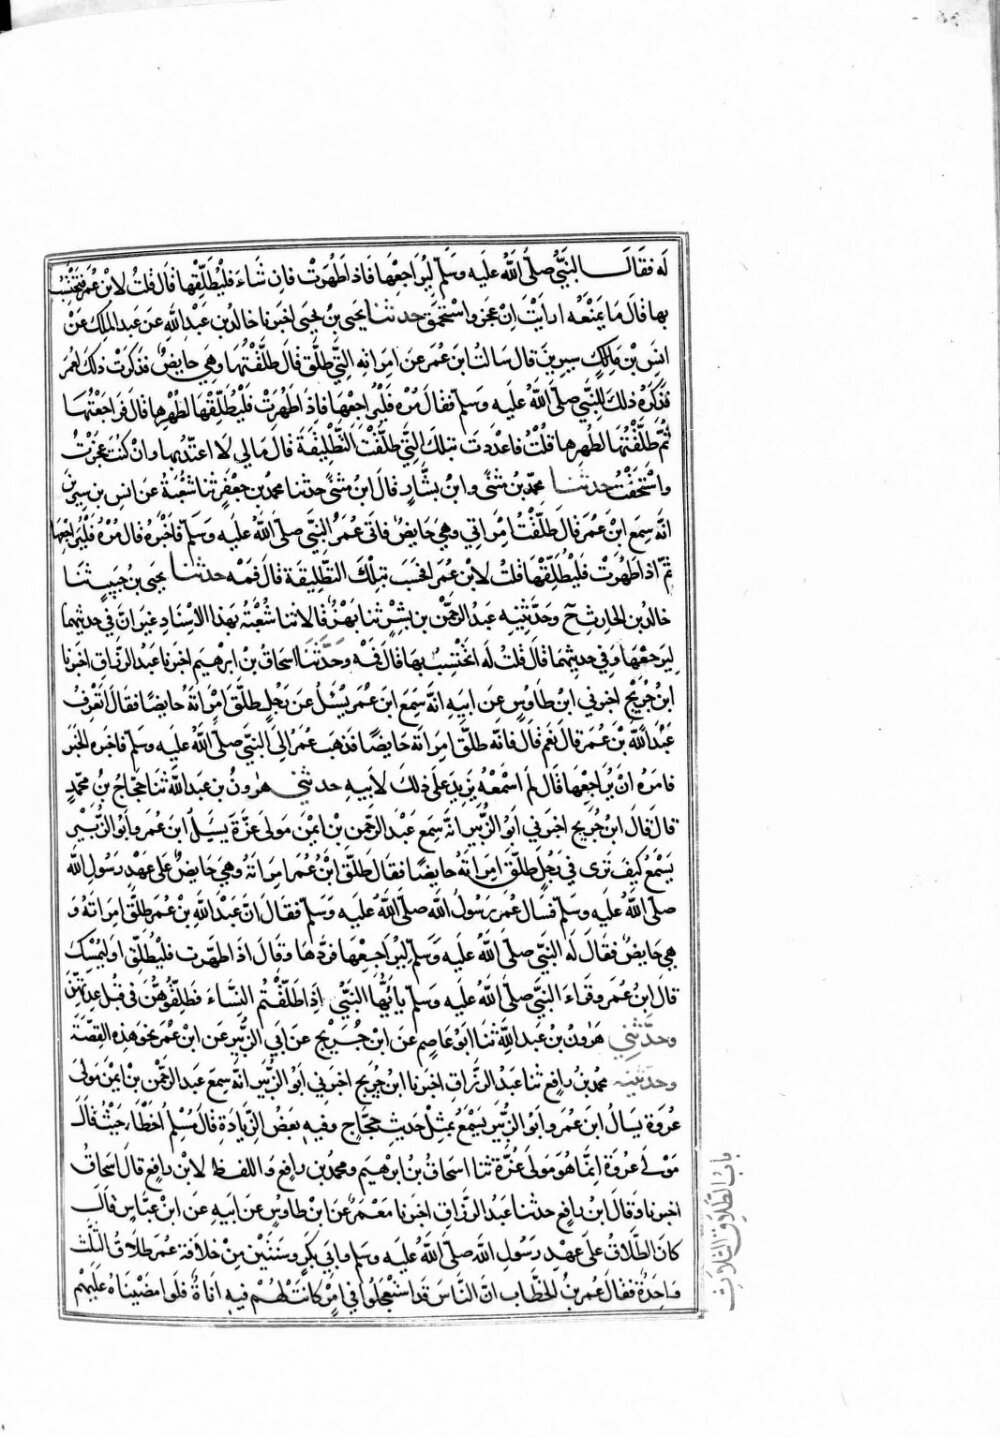 له فقال النبي صلى الله عليه وسلم ليراجعها فاذا طهرت فان شاء فليطلقها قال قلت لابن عمر فتحتسب
بها قال ما يمنعه ارايت ان عجز واستحمق حدثنا يحيى بن يحيى اخبرنا خالد بن عبد الله عن عبد الملك عن
انس بن مالك سيرين قال سالت ابن عمر عن امراته التي طلق فقال طلقتها وهي حايض فذكرت ذلك لعمر
فذكره ذلك للنبي صلى الله عليه وسلم فقال مره فليراجعها فاذا طهرت فليطلقها لطهرها قال فراجعتها
ثم طلقتها لطهرها قلت فاعددت بتلك التي طلقت التطليقة قال مالي لا اعتد بها وان كنت عجزت
واستحمقت حدثنا محمد بن مثنى وابن بشار قال ابن مثنى حدثنا محمد بن جعفر ثنا شعبة عن انس بن سيرين
انه سمع ابن عمر قال طلقت امراتي وهي حايض فاتى عمر النبي صلى الله عليه وسلم فاخبره قال مره فليراجعها
ثم اذا طهرت فليطلقها قلت لابن عمر اتحسب بتلك التطليقة قال فمه حدثنا يحيى بن حبيب ثنا
خالد بن الحارث ح وحدثنيه عبد الرحمن بن بشر ثنا بهز قالا ثنا شعبة بهذا الاسناد غير ان في حديثهما
ليرجعها وفي حديثهما قال قلت له اتحتسب بها قال فمه وحدثنا اسحاق بن ابرهيم اخبرنا عبد الرزاق اخبرنا
ابن جريج اخبرني ابن طاوس عن ابيه انه سمع ابن عمر يسئل عن رجل طلق امراته حايضا فقال اتعرف
عبد الله بن عمر قال نعم قال فانه طلق امراته حايضا فذهب عمر الى النبي صلى الله عليه وسلم فاخبره الخبر
فامره ان يراجعها قال لم اسمعه يزيد على ذلك لابيه حدثني هرون بن عبد الله ثنا حجاج بن محمد
قال قال ابن جريج اخبرني ابو الزبير انه سمع عبد الرحمن بن ايمن مولى عزة يسئل ابن عمر وابو الزبير
يسمع كيف ترى في رجل طلق امراته حايضا فقال طلق ابن عمر امراته وهي حايض على عهد رسول الله
صلى الله عليه وسلم فسال عمر رسول الله صلى الله عليه وسلم فقال ان عبد الله بن عمر طلق امراته و
هي حايض فقال له النبي صلى الله عليه وسلم ليراجعها فردها وقال اذا طهرت فليطلق او ليمسك
قال ابن عمر وقراء النبي صلى الله عليه وسلم يايها النبي اذا طلقتم النساء فطلقوهن في قبل عدتهن
وحدثني هرون بن عبد الله ثنا ابو عاصم عن ابن جريج عن ابي الزبير عن ابن عمر نحو هذه القصة
وحدثنيه محمد بن رافع ثنا عبد الرزاق اخبرنا ابن جريج اخبرني ابو الزبير انه سمع عبد الرحمن بن ايمن مولى
عروة يسال ابن عمر وابو الزبير يسمع بمثل حديث حجاج وفيه بعض الزيادة قال مسلم اخطا حيث قال
مولى عروة انما هو مولى عزة ثنا اسحاق بن ابرهيم ومحمد بن رافع واللفظ لابن رافع قال اسحاق
اخبرنا وقال ابن رافع حدثنا عبد الرزاق اخبرنا معمر عن ابن طاوس عن ابيه عن ابن عباس قال
كان الطلاق على عهد رسول الله صلى الله عليه وسلم وابي بكر وسنتين من خلافة عمر طلاق الثلث
واحدة فقال عمر بن الخطاب ان الناس قد استعجلوا في امر كانت لهم فيه اناة فلو امضيناه عليهم
باب الطلاق الثلاث